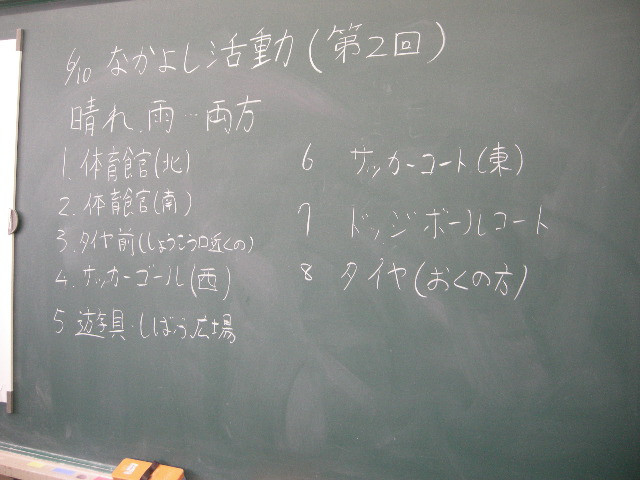 6/10 なかよし活動(第2回)
晴れ、雨…両方
1. 体育館(北)
2. 体育館(南)
3. タイヤ前(しょうこう口近くの)
4. サッカーゴール(西)
5 遊具・しばふ広場
6 サッカーコート(東)
7 ドッジボールコート
8 タイヤ(おくの方)